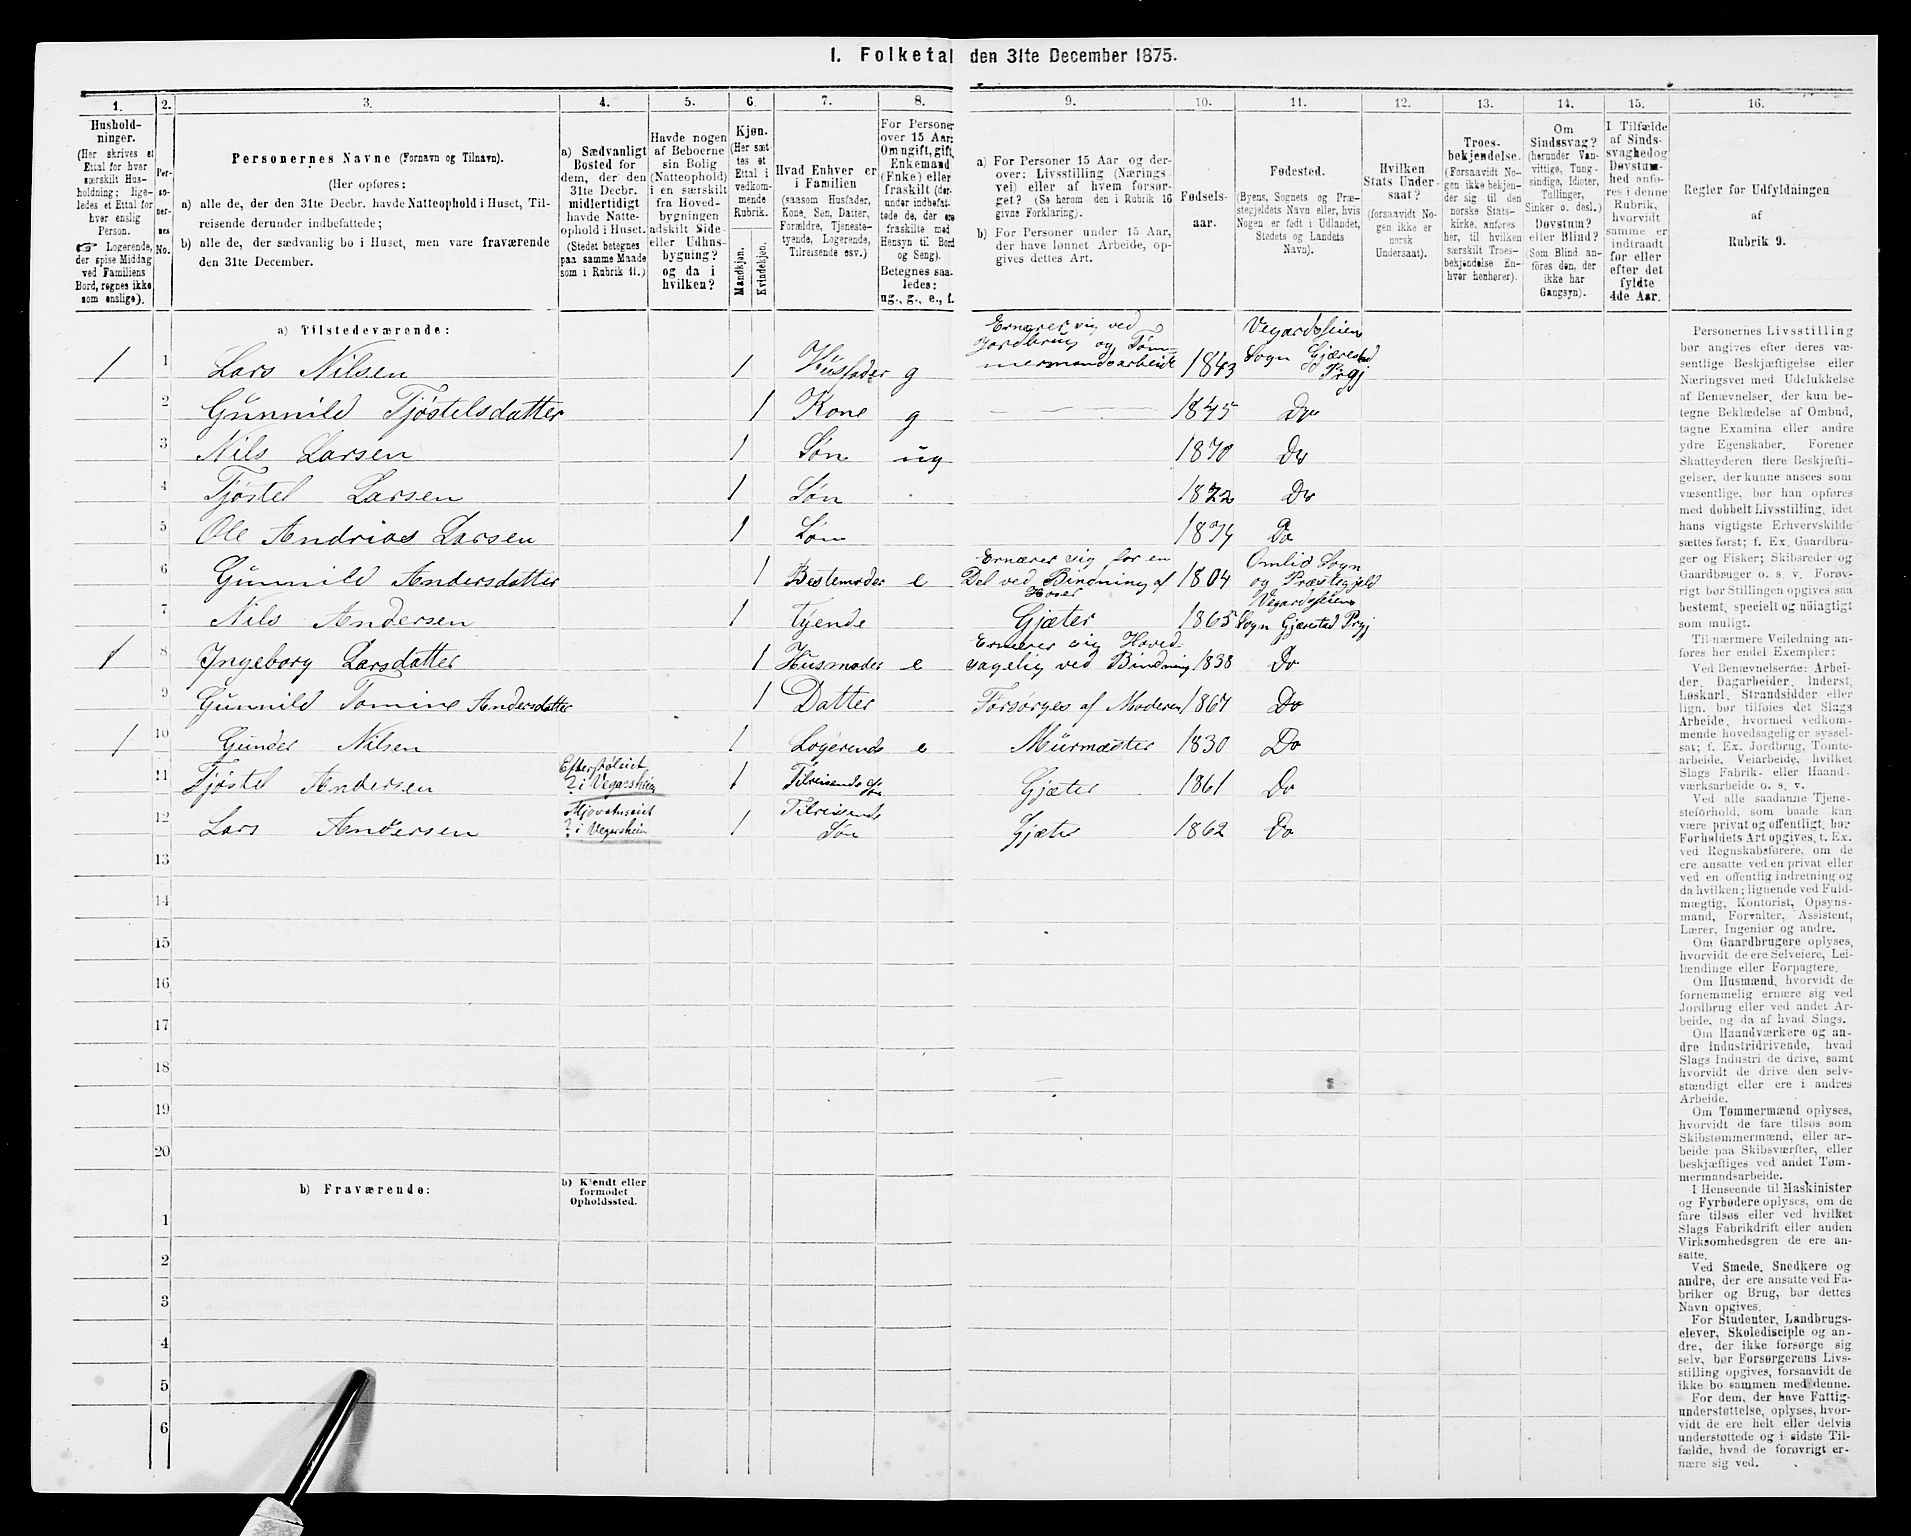 1. Folketal den 31te December 1875.
1. 2. 3. 4. 5. 6. 7. 8. 9. 10. 11. 12. 13. 14. 15. 16.
Hushold-
ninger.
(Her skrives et
Ettal for hver
særskilt Hus-
holdning; lige-
ledes et Ettal for
hver enslig
Person.
☞ Logerende,
der spise Middag
ved Familiens
Bord, regnes ikke
som enslige).
Per-
so-
ner-
nes
No.
Personernes Navne (Fornavn og Tilnavn).
(Her opføres:
a) alle de, der den 31te Decbr. havde Natteophold i Huset, Til-
reisende derunder indbefattede;
b) alle de, der sædvanlig bo i Huset, men vare fraværende
den 31te December.
a) Sædvanligt
Bosted for
dem, der den
31te Decbr.
midlertidigt
havde Natte-
ophold i Huset.
(Stedet betegnes
paa samme Maade
som i Rubrik 11.)
Havde nogen
af Beboerne
sin Bolig
(Natteophold)
i en særskilt
fra Hoved-
bygningen
adskilt Side-
eller Udhus-
bygning?
og da i
hvilken?
Kjøn.
(Her sæt-
tes et
Ettal i
vedkom-
mende
Rubrik.
Mandkjøn.
Kvindekjøn.
Hvad Enhver er
i Familien
(saasom Husfader,
Kone, Søn, Datter,
Forældre, Tjeneste-
tyende, Logerende,
Tilreisende osv.)
For Personer
over 15 Aar:
Om ugift, gift,
Enkemand
(Enke) eller
fraskilt (der-
under indbefat-
tede de, der ere
fraskilte med
Hensyn til Bord
og Seng).
Betegnes saa-
ledes:
ug., g., e., f.
a) For Personer 15 Aar og der-
over: Livsstilling (Nærings-
vei) eller af hvem forsør-
get? (Se herom den i Rubrik 16
givne Forklaring).
b) For Personer under 15 Aar,
der have lønnet Arbeide, op-
gives dettes Art.
Fødsels-
aar.
Fødested.
(Byens, Sognets og Præ-
stegjeldets Navn eller, hvis
Nogen er født i Udlandet,
Stedets og Landets
Navn).
Hvilken
Stats Under-
saat?
(forsaavidt No-
gen ikke er
norsk
Undersaat).
Troes-
bekjendelse.
(Forsaavidt No-
gen ikke bekjen-
der sig til den
norske Stats-
kirke, anføres
her, til hvilken
særskilt Troes-
bekjendelse En-
hver henhører).
Om
Sindssvag?
(herunder Van-
vittige, Tung-
sindige, Idioter,
Tullinger,
Sinker o. desl.)
Døvstum?
eller Blind?
(Som Blind an-
føres den, der
ikke har
Gangsyn).
I Tilfælde
af Sinds-
svaghed og
Døvstum-
hed anfø-
res i denne
Rubrik,
hvorvidt
samme er
indtraadt
før eller
efter det
fyldte
4de Aar.
Regler for Udfyldningen
af
Rubrik 9.
a) Tilstedeværende:
1 1 Lars Nilsen 1 Husfader g Ernærer sig ved Jordbrug og Tømmermandsarbeide 1843 Vegardsheiens Sogn Gjerestad Prgj
2 Gunnild Tjøstelsdatter 1 Kone g 1845 Do
3 Nils Larsen 1 Søn ug 1870 Do
4 Tjøstel Larsen 1 Søn 1872 Do
5 Ole Andrias Larsen 1 Søn 1874 Do
6 Gunnild Andersdatter 1 Bestemoder e Ernærer sig for en Del ved Bindning af Hoser 1804 Omlid Sogn og Præstegjeld
7 Nils Andersen 1 Tyende Gjæter 1865 Vegardsheiens Sogn Gjerestad Prgj
1 8 Ingeborg Larsdatter 1 Husmoder e Ernærer sig Hovedsagelig ved Bindning 1838 Do
9 Gunnild Tomine Andersdatter 1 Datter Forsørges af Moderen 1867 Do
1 10 Gunder Nilsen 1 Logerende e Murmester 1830 Do
11 Tjøstel Andersen ? i Vegarsheien 1 Tilreisende Søn Gjæter 1861 Do
12 Lars Andersen ? i Vegarsheien 1 Tilreisende Søn Gjæter 1862 Do
13
14
15
16
17
18
19
20
b) Fraværende:
b) Kjendt eller
formodet
Opholdssted.
1
2
3
4
5
6
Personernes Livsstilling
bør angives efter deres væ-
sentlige Beskjæftigelse eller
Næringsvei med Udelukkelse
af Benævnelser, der kun be-
tegne Beklædelse af Ombud,
tagne Examina eller andre
ydre Egenskaber. Forener
Skatteyderen flere Beskjæfti-
gelser, der kunne ansees som
væsentlige, bør han opføres
med dobbelt Livsstilling, idet
hans vigtigste Erhvervskilde
sættes først; f. Ex. Gaardbru-
ger og Fisker; Skibsreder og
Gaardbruger o. s. v. Forøv-
rigt bør Stillingen opgives saa
bestemt, specielt og nöiagtigt
som muligt.
Til nærmere Veiledning an-
føres her endel Exempler:
Ved Benævnelserne: Arbei-
der, Dagarbeider, Inderst,
Løskarl, Strandsidder eller
lign. bør tilføies det Slags
Arbeide, hvormed vedkom-
mende hovedsagelig er syssel-
sat; f. Ex. Jordbrug, Tomte-
arbeide, Veiarbeide, hvilket
Slags Fabrik- eller Haand-
værksarbeide o. s. v.
Ved alle saadanne Tjene-
steforhold, som baade kan
være privat og offentligt, bør
Forholdets Art opgives, t. Ex.
ved Regnskabsførere, om de
ere ansatte ved en privat eller
ved en offentlig indretning og
da hvilken; lignende ved Fuld-
mægtig, Kontorist, Opsyns-
mand, Forvalter, Assistent,
Lærer, Ingeniør og andre.
Om Gaardbrugere oplyses,
hvorvidt de ere Selveiere, Lei-
lændinge eller Forpagtere.
Om Husmænd, hvorvidt de
fornemmelig ernære sig ved
Jordbrug eller ved andet Ar-
beide, og da af hvad Slags.
Om Haandværkere og an-
dre Industridrivende, hvad
Slags Industri de drive, samt
hvorvidt de drive den selv-
stændigt eller ere i andres
Arbeide.
Om Tømmermænd oplyses,
hvorvidt de fare tilsøs som
Skibstømmermænd, eller ar-
beide paa Skibsværfter, eller
beskjæftiges ved andet Tøm-
mermandsarbeide.
I Henseende til Maskinister
og Fyrbødere oplyses, om de
fare tilsøs eller ved hvilket
Slags Fabrikdrift eller anden
Virksomhedsgren de ere an-
satte.
Ved Smede, Snedkere og
andre, der ere ansatte ved Fa-
briker og Brug, bør dettes
Navn opgives.
For Studenter, Landbrugs-
elever, Skoledisciple og an-
dre, der ikke forsørge sig
selv, bør Forsørgerens Livs-
stilling opgives, forsaavidt de
ikke bo sammen med denne.
For dem, der have Fattig-
understøttelse, oplyses, hvor-
vidt de ere helt eller delvis
understøttede og i sidste Til-
fælde, hvad de forøvrigt er-
nære sig ved.